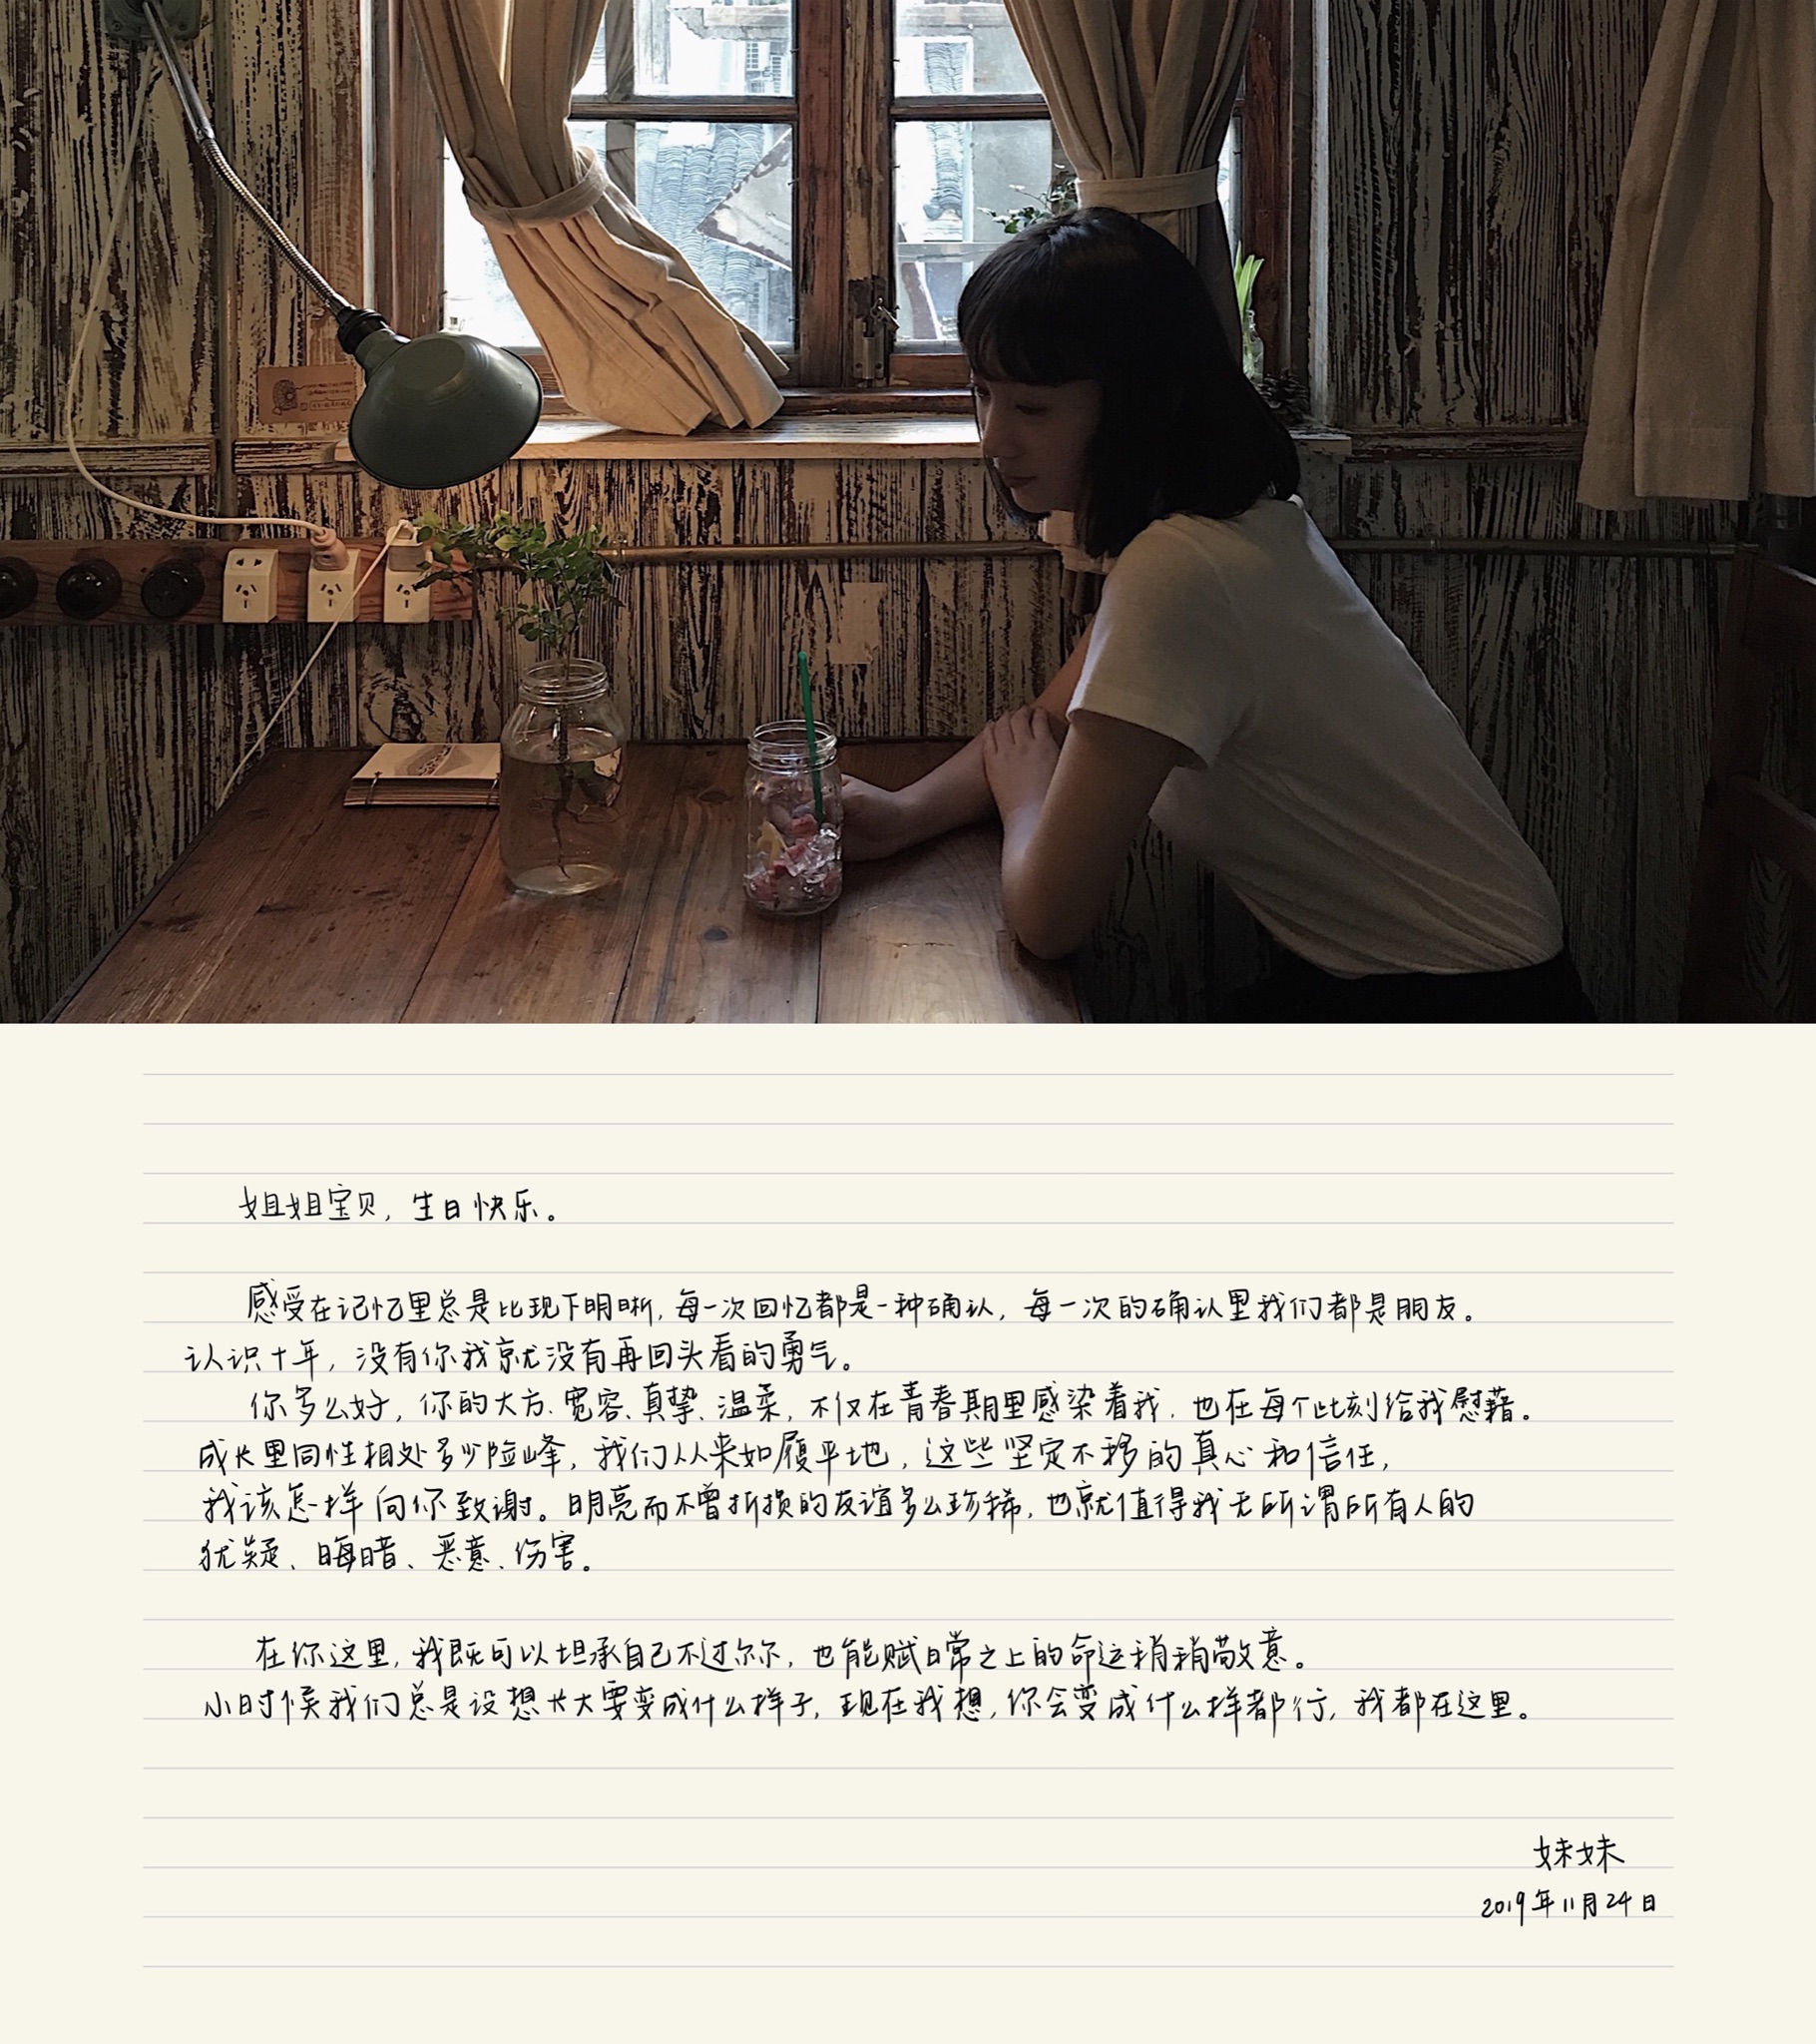 姐姐宝贝，生日快乐。
感受在记忆里总是比现下明晰，每一次回忆都是一种确认，每一次的确认里我们都是朋友。
认识十年，没有你我就没有再回头看的勇气。
你多么好，你的大方、宽容、真挚、温柔，不仅在青春期里感染着我，也在每个此刻给我慰藉。
成长里同性相处多少险峰，我们从来如履平地，这些坚定不移的真心和信任，
我该怎样向你致谢。明亮而不曾折损的友谊多么珍稀，也就值得我无所谓所有人的
犹疑、晦暗、恶意、伤害。
在你这里，我既可以坦承自己不过尔尔，也能赋日常之上的命运稍稍敬意。
小时候我们总是设想长大要变成什么样子，现在我想，你会变成什么样都行，我都在这里。
妹妹
2019年11月24日